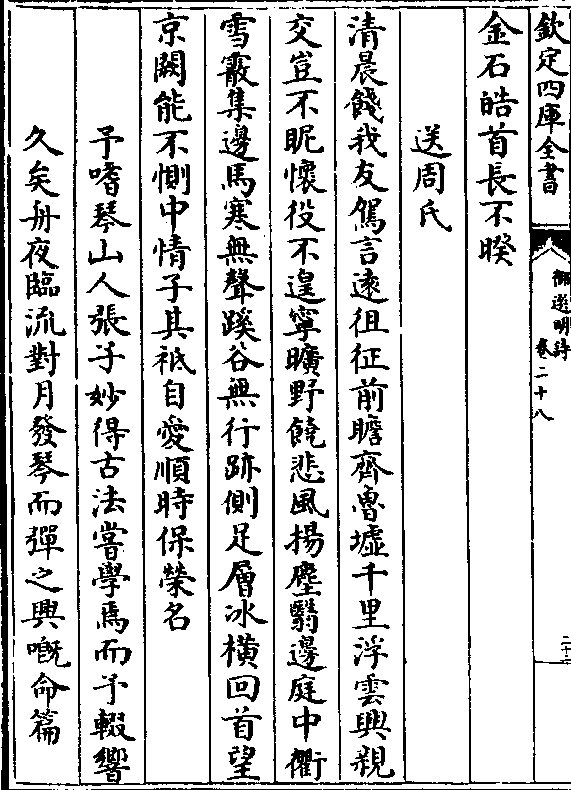 欽定四庫全書
御選明詩
卷二十八
金石皓首長不睽
送周氏
清晨餞我友駕言遠徂征前瞻齊魯墟千里浮雲興親
交豈不昵懷役不遑寧曠野饒悲風揚塵翳邊庭中衢
雪霰集邊馬寒無聲蹊谷無行跡側足層冰橫回首望
京闕能不惻中情子其祗自愛順時保榮名
予嗜琴山人張子妙得古法嘗學焉而予輟響
久矣舟夜臨流對月發琴而彈之興嘅命篇